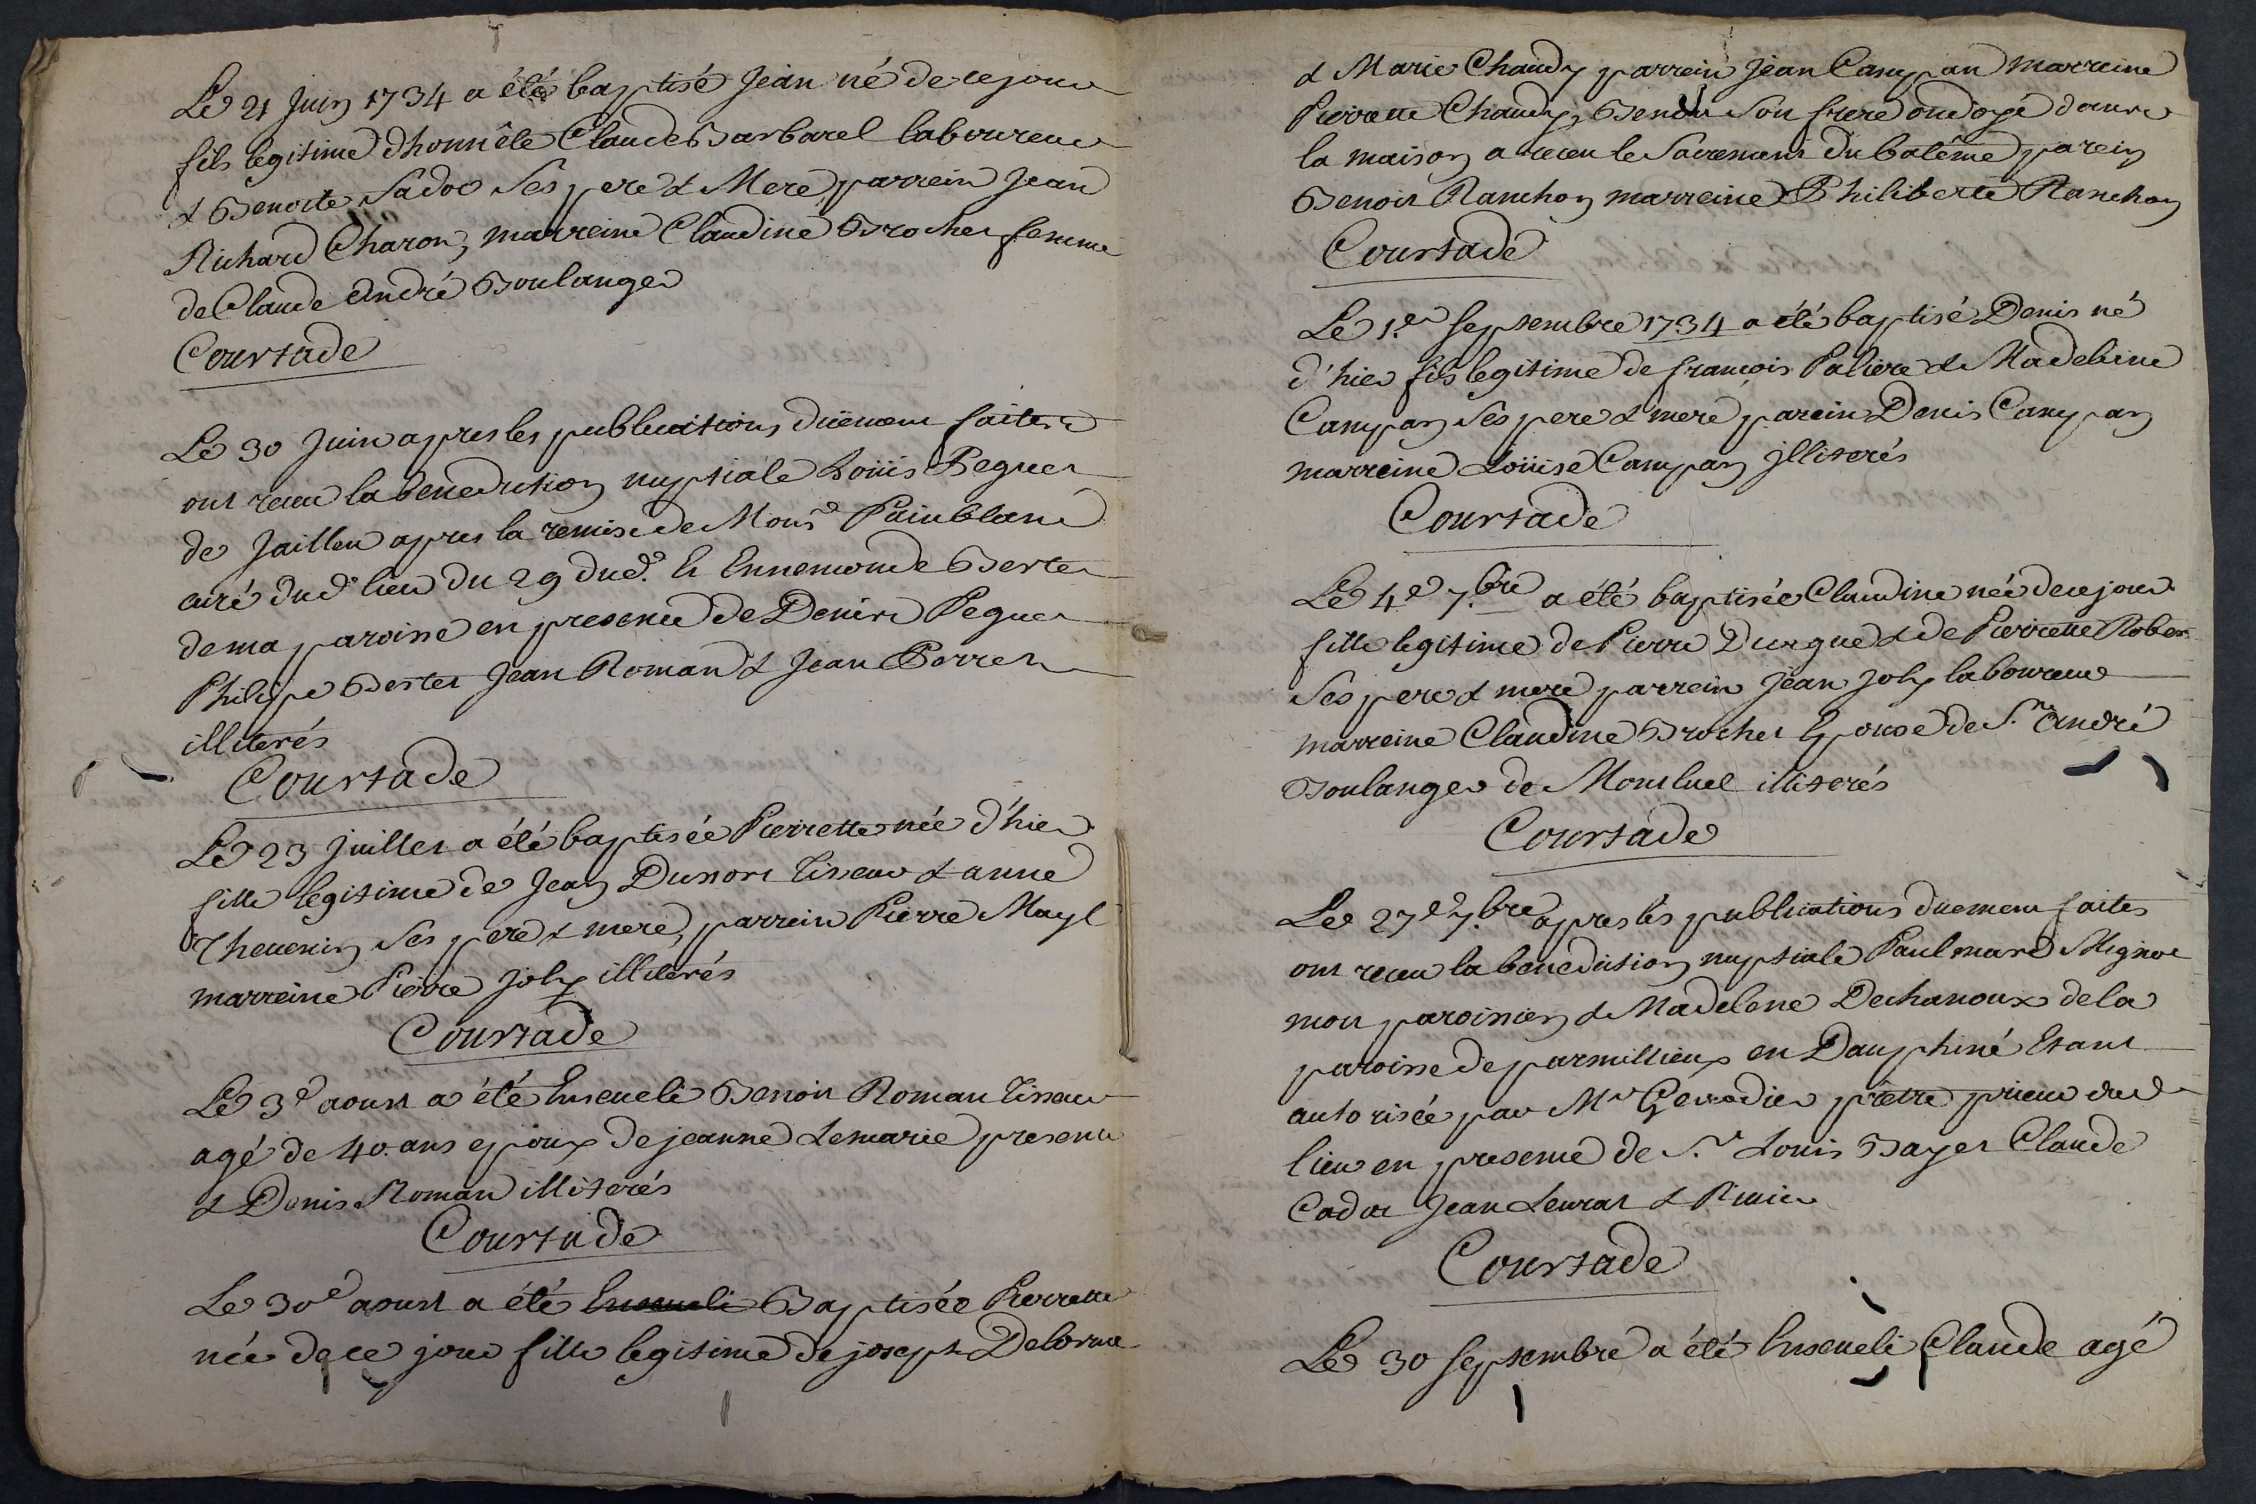 Le 21 Juin 1734 a été baptisé Jean né de ce jour
fils legitime d'honnête Claude Barbarel laboureur
& Benoite Sadoc Ses pere & Mere, parrein Jean
Richard Charon, marreine Claudine Brochet femme
de Claude André Boulanger
Courtade
Le 30 Juin apres les publications düement faites
ont receu la benediction nuptiale Loüis Peguet
de Jaillieu apres la remise de Monsr Painblanc
curé dud. lieu du 29 dud. Et Ennemonde Bertet
de ma paroisse en presence de Peguet
Philipe Bertet Jean Roman & Jean Perret
illiterés
Courtade
Le 23 Juillet a été baptisée Pierrette née d'hier
fille legitime de Jean Dumont Tisseur & anne
Thevenin Ses pere & mere, parrein Pierre
marreine Pierre Joly illiterés
Courtade
Le 3e aoust a été Enseveli Benoit Roman Tisseur
agé de 40. ans epoux de jeanne Lemarie presens
& Denis Roman illiterés
Courtade
Le 30e aoust a été Enseveli Baptisée Pierrette
née de ce jour fille legitime de joseph Delorme
& Marie Chaudy parrein Jean Campan marreine
Pierrette Chaudy, Benoit Son frere ondoyé dans
la maison a receu le Sacrement du batême parein
Benoit Ranchon marreine Philiberte Ranchon
Courtade
Le 1.er Septembre 1734 a été baptisé Denis né
d'hier fils legitime de françois Paliere & Madeleine
Campan Ses pere & mere parein Denis Campan
marreine Loüise Campan Jlliterés
Courtade
Le 4.e 7.bre a été baptisée Claudine née de ce jour
fille legitime de Pierre Durgue & de Pierrette Robert
Ses pere & mere parrein Jean Joly laboureur
marreine Claudine Brochet Epouse de S.r André
Boulanger de Montluel illiterés
Courtade
Le 27e 7.bre apres les publications duement faites
ont receu la benediction nuptiale Paul marc Mignot
mon paroissien & Madelene Dechanoux de la
paroisse de parmillieux en Dauphiné Etant
autorisée par Mr prêtre prieur dud
lieu en presence de S.r Louis Bayet Claude
Cadot Jean Leurat &
Courtade
Le 30 Septembre a été Enseveli Claude agé